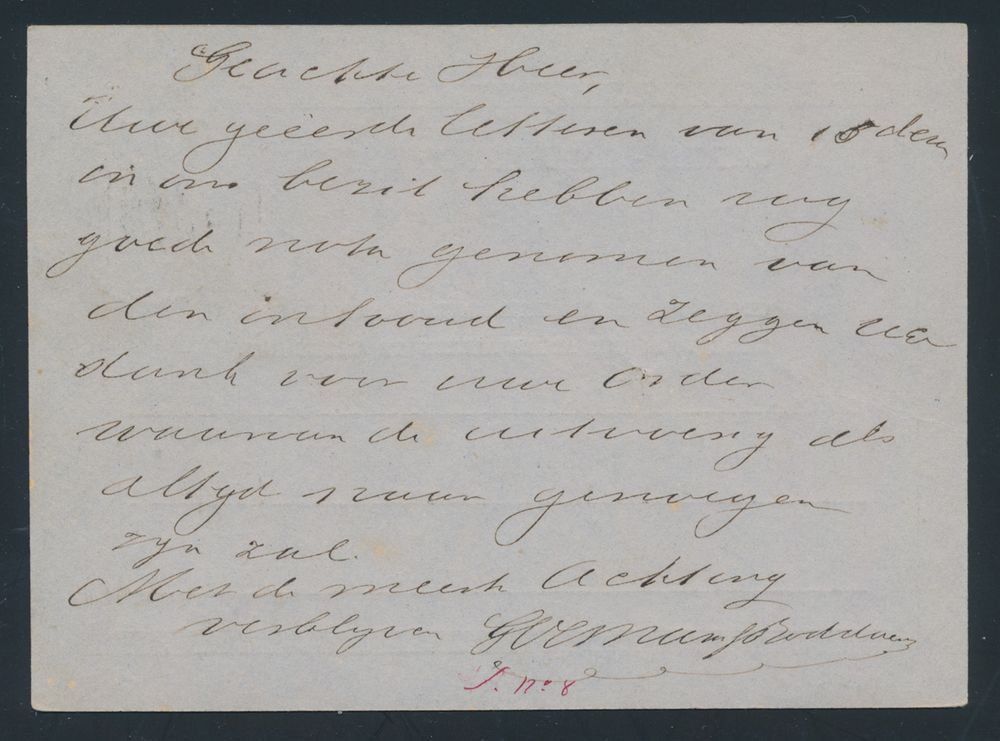 Geachte Heer,
Uwe geëerde letteren van 18 dezer
in ons bezit hebben wy
goede nota genomen van
den inhoud en zeggen UE
dank voor uwe order
waarvan de uitvoering als
altyd naar genoegen
zyn zal.
Met de meeste Achting
verblyven
J. no 8